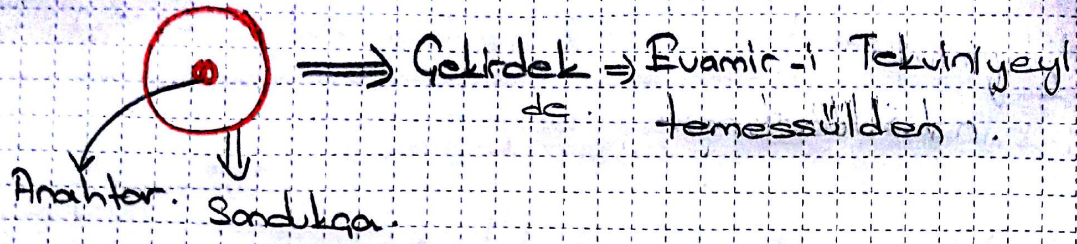 Çekirdek ⇒ Evamir-i Tekviniyeyi
de temessülden.
Anahtar.
Sandukça.